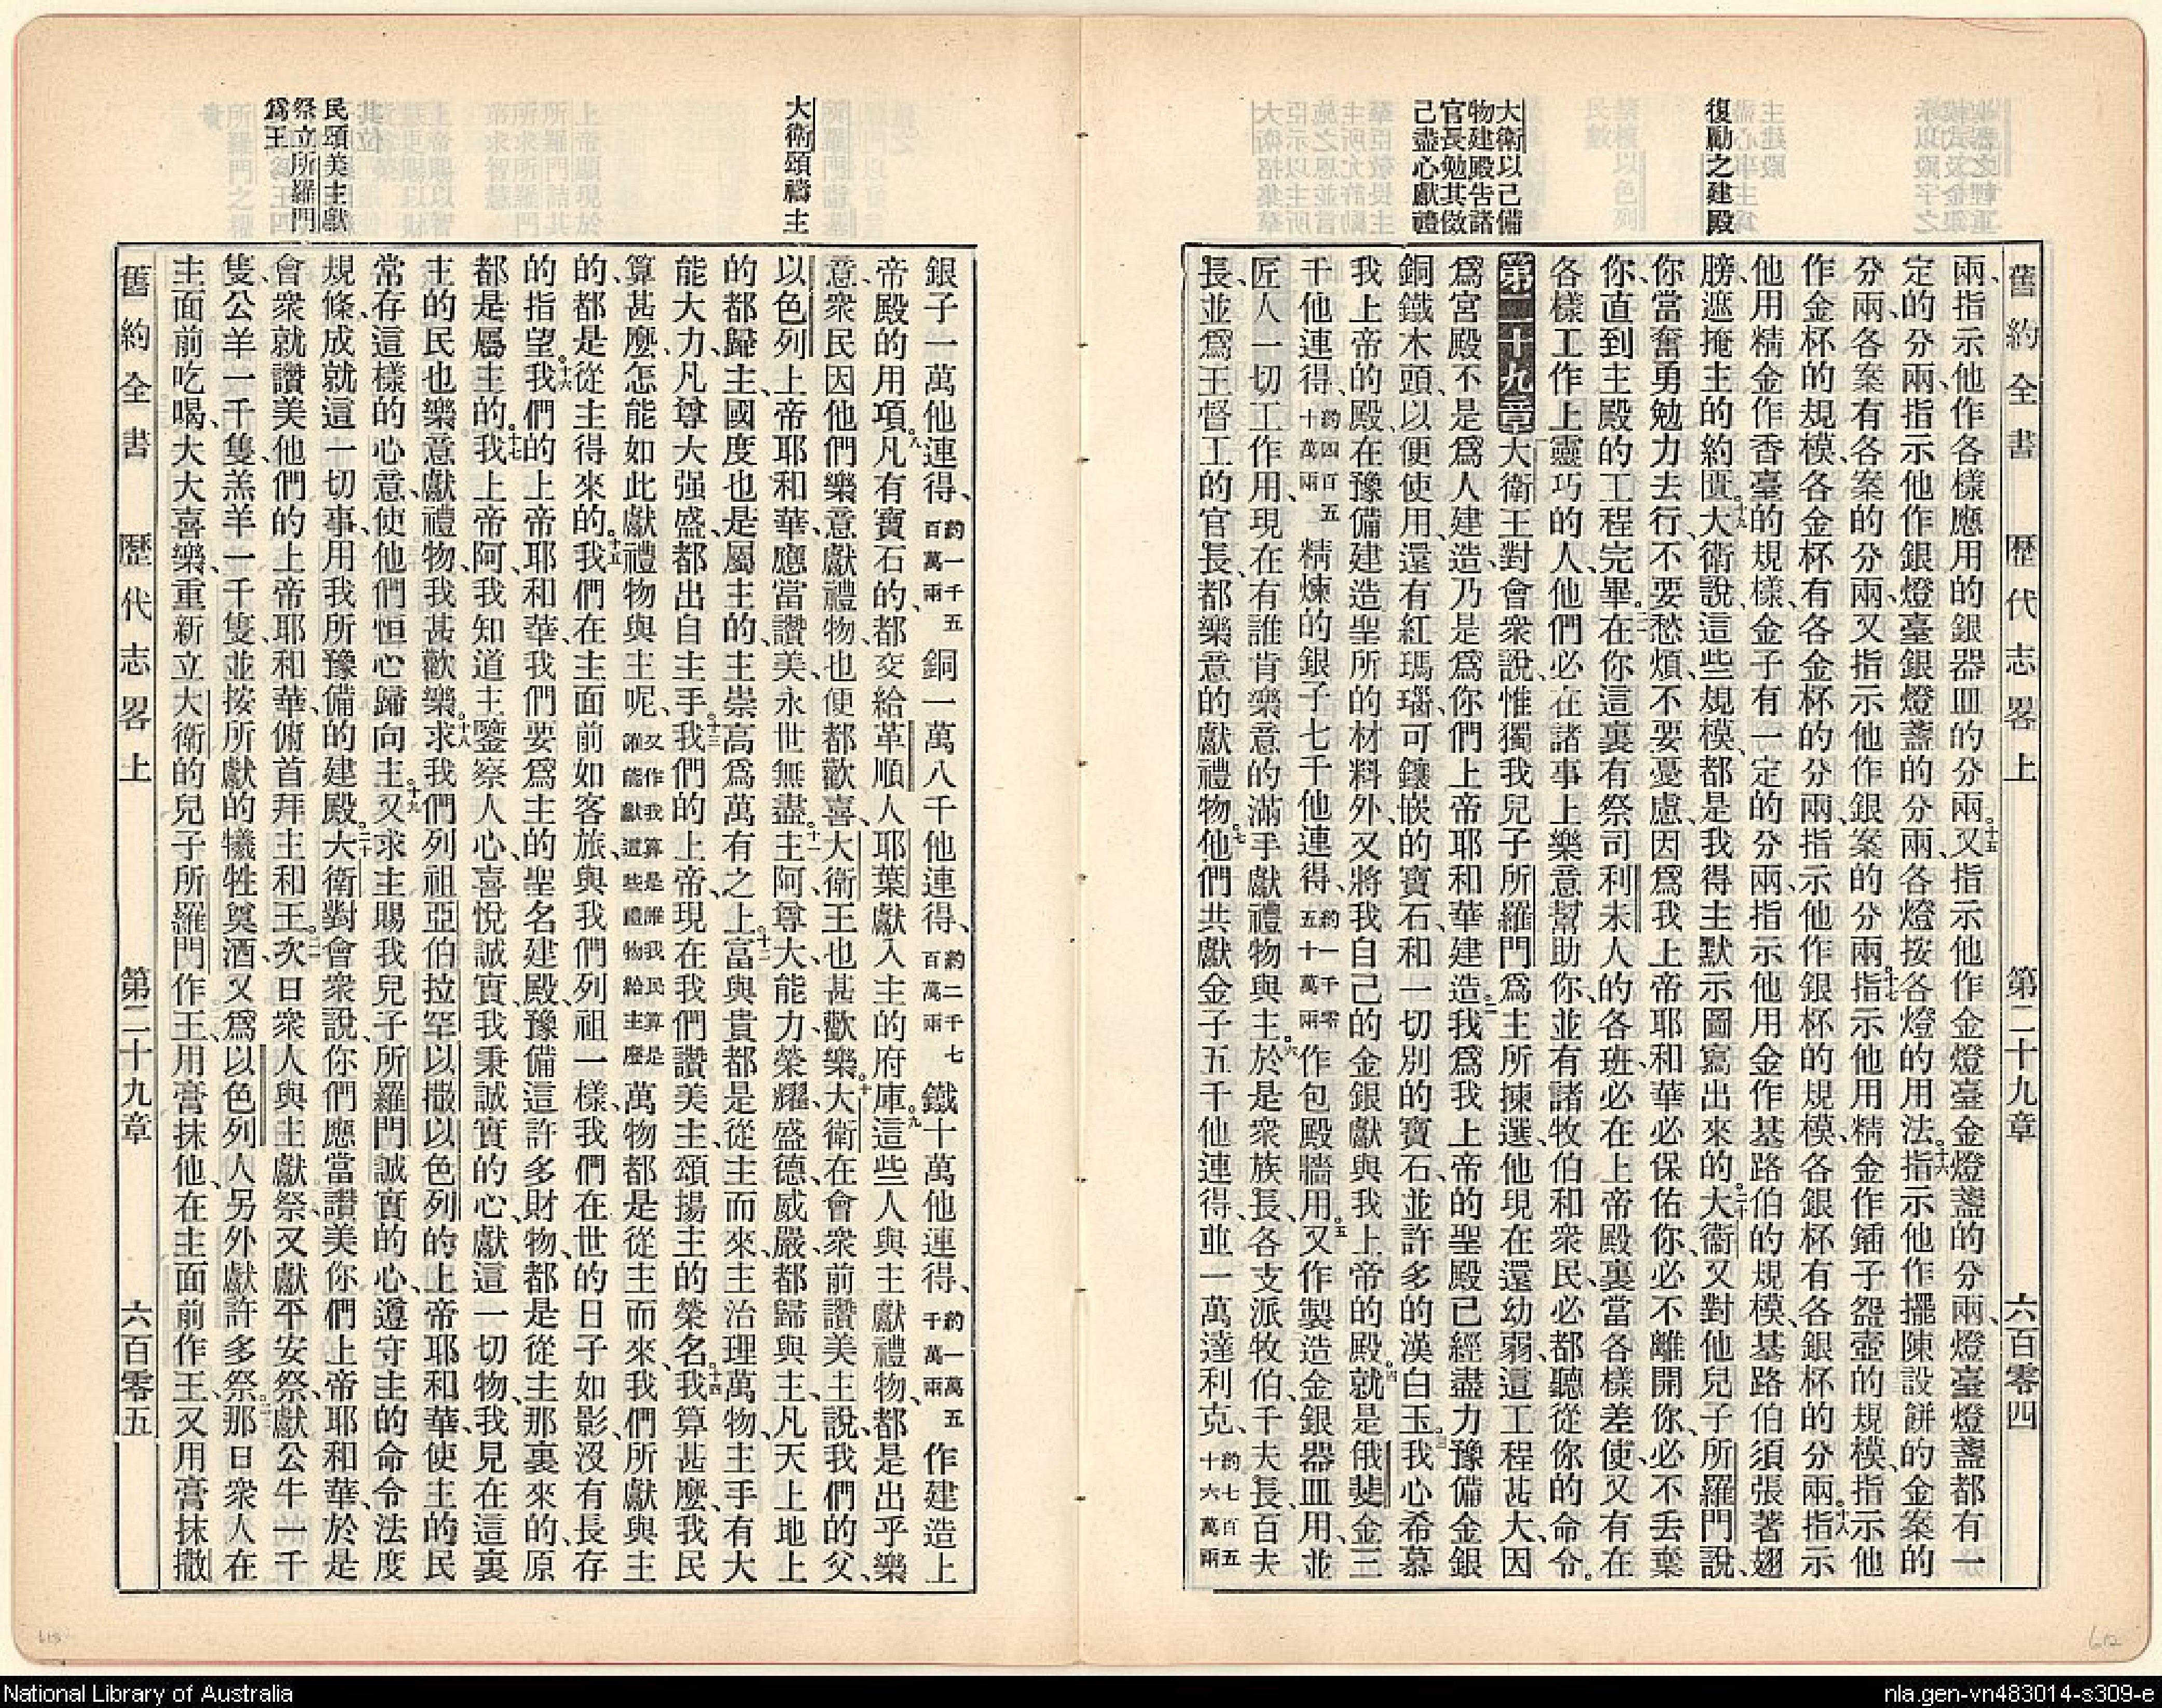 舊約全書 歷代志畧上 第二十九章 六百零四
復勵之建殿
大衛以己備
物建殿告諸
官長勉其傚
己盡心獻禮
兩、指示他作各樣應用的銀器皿的分兩。十五又指示他作金燈臺金燈盞的分兩、燈臺燈盞都有一
定的分兩、指示他作銀燈臺銀燈盞的分兩、各燈按各燈的用法。十六指示他作擺陳設餅的金案的
分兩、各案有各案的分兩、又指示他作銀案的分兩。十七指示他用精金作鍤子盌壺的規模、指示他
作金杯的規模、各金杯有各金杯的分兩、指示他作銀杯的規模、各銀杯有各銀杯的分兩。十八指示
他用精金作香臺的規樣、金子有一定的分兩、指示他用金作基路伯的規模、基路伯須張著翅
膀、遮掩主的約匱。十九大衛說、這些規模、都是我得主默示圖寫出來的。二十大衛又對他兒子所羅門說、
你當奮勇勉力去行、不要愁煩、不要憂慮、因爲我上帝耶和華必保佑你、必不離開你、必不丟棄
你、直到主殿的工程完畢。二一在你這裏有祭司利未人的各班、必在上帝殿裏當各樣差使、又有在
各樣工作上靈巧的人、他們必在諸事上樂意幫助你、並有諸牧伯和衆民、必都聽從你的命令。
第二十九章大衛王對會衆說、惟獨我兒子所羅門爲主所揀選、他現在還幼弱、這工程甚大、因
爲宮殿不是爲人建造、乃是爲你們上帝耶和華建造。二我爲我上帝的聖殿已經盡力豫備金銀
銅鐵木頭、以便使用、還有紅瑪瑙、可鑲嵌的寶石、和一切別的寶石、並許多的漢白玉。三我心希慕
我上帝的殿、在豫備建造聖所的材料外、又將我自己的金銀獻與我上帝的殿。四就是俄斐金三
千他連得、約四百五十萬兩精煉的銀子七千他連得、約一千零五十萬兩作包殿牆用。五又作製造金銀器皿用、並
匠人一切工作用、現在有誰肯樂意的滿手獻禮物與主。六於是衆族長、各支派牧伯、千夫長、百夫
長、並爲王督工的官長、都樂意的獻禮物。七他們共獻金子五千他連得、並一萬達利克、約七百五十六萬兩
大衛頌禱主
民頌美主獻
祭立所羅門
爲王
銀子一萬他連得、約一千五百萬兩銅一萬八千他連得、約二千七百萬兩鐵十萬他連得、約一萬五千萬兩作建造上
帝殿的用項。八凡有寶石的、都交給革順人耶葉獻入主的府庫。九這些人與主獻禮物、都是出乎樂
意、衆民因他們樂意獻禮物、也便都歡喜、大衛王也甚歡樂。十大衛在會衆前讚美主說、我們的父、
以色列上帝耶和華、應當讚美、永世無盡。十一主阿、尊大能力榮耀、盛德威嚴、都歸與主、凡天上地上
的都歸主、國度也是屬主的、主崇高爲萬有之上。十二富與貴都是從主而來、主治理萬物、主手有大
能大力、凡尊大强盛都出自主手。十三我們的上帝、現在我們讚美主、頌揚主的榮名。十四我算甚麼、我民
算甚麼、怎能如此獻禮物與主呢、又作我算是誰我民算是誰能獻這些禮物給主麼萬物都是從主而來、我們所獻與主
的、都是從主得來的。十五我們在主面前如客旅、與我們列祖一樣、我們在世的日子如影、沒有長存
的指望。十六我們的上帝耶和華、我們要爲主的聖名建殿、豫備這許多財物、都是從主那裏來的、原
都是屬主的。十七我上帝阿、我知道主鑒察人心、喜悅誠實、我秉誠實的心、獻這一切物、我見在這裏
主的民也樂意獻禮物、我甚歡樂。十八求我們列祖亞伯拉罕以撒以色列的上帝耶和華、使主的民
常存這樣的心意、使他們恒心歸向主。十九又求主賜我兒子所羅門誠實的心、遵守主的命令法度
規條、成就這一切事、用我所豫備的建殿。二十大衛對會衆說、你們應當讚美你們上帝耶和華、於是
會衆就讚美他們的上帝耶和華、俯首拜主和王。二一次日衆人與主獻祭、又獻平安祭、獻公牛一千
隻、公羊一千隻、羔羊一千隻、並按所獻的犧牲奠酒、又爲以色列人另外獻許多祭。二二那日衆人在
主面前吃喝、大大喜樂、重新立大衛的兒子所羅門作王、用膏抹他、在主面前作王、又用膏抹撒
舊約全書 歷代志畧上 第二十九章 六百零五
National Library of Australia
nla.gen-vn483014-s309-e